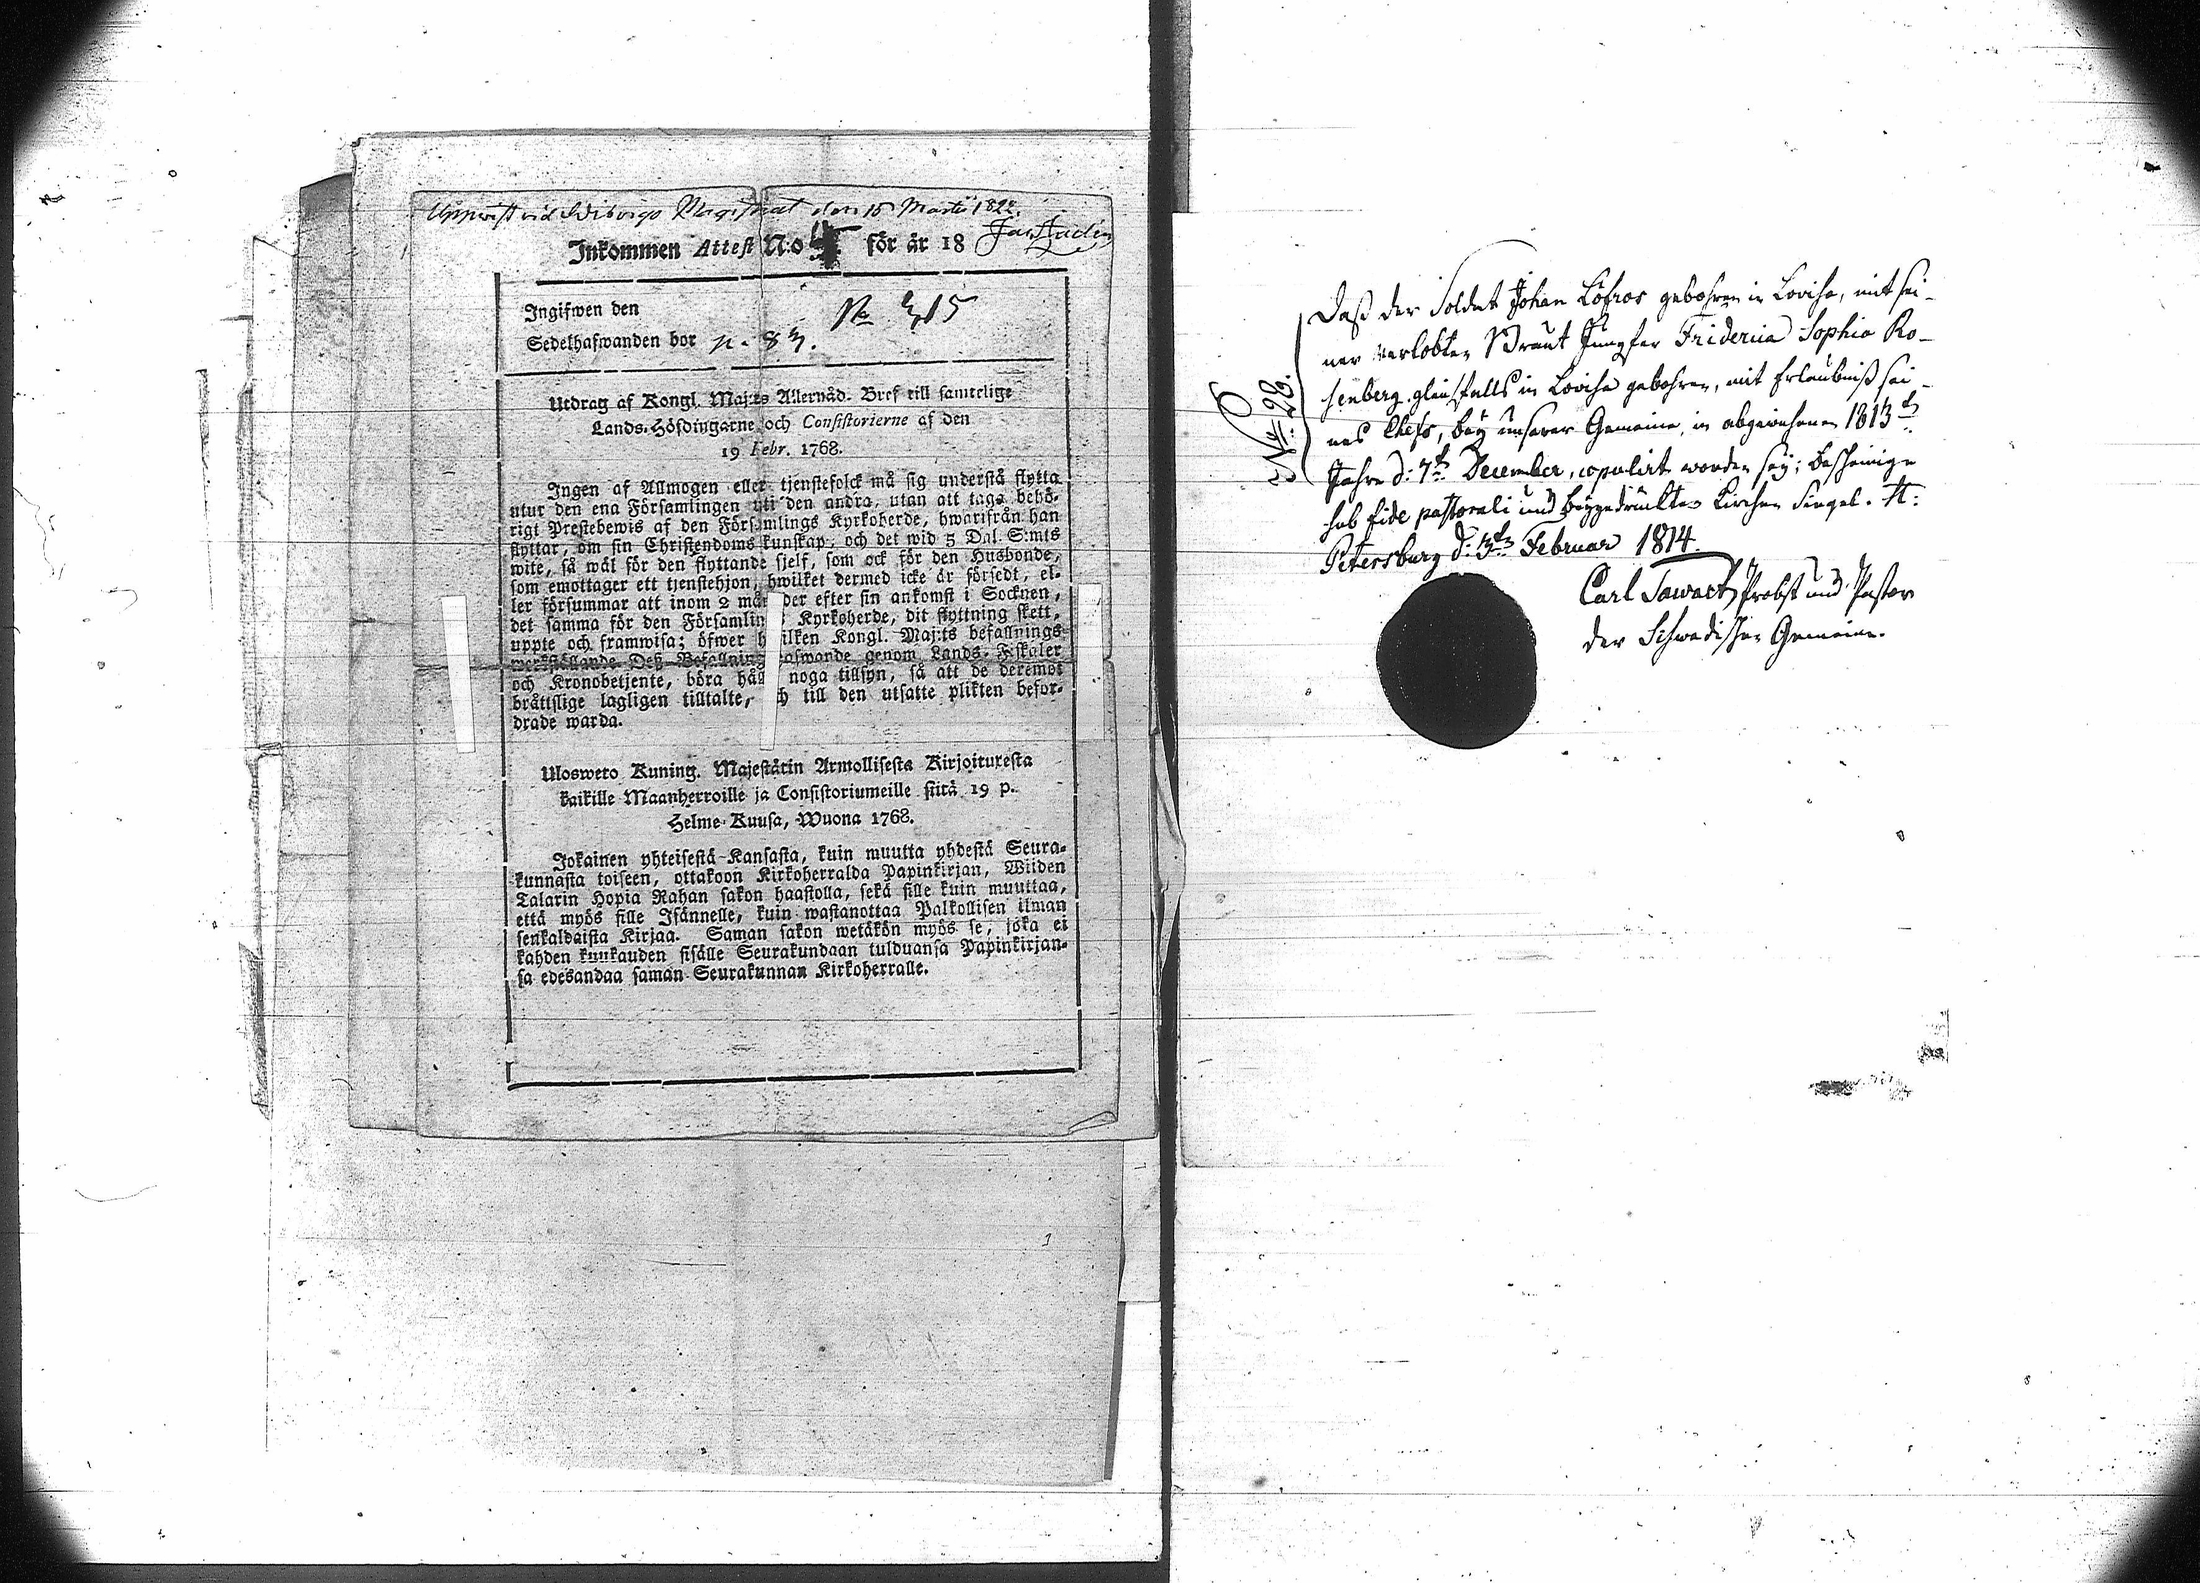 Uppvist vid Wiborgs Magistrat den 15 Martii 1822.
Inkommen Attest N:o för år 18
Ingifwen den
No 315
Sedelhafwanden bor p. 83.
Utdrag af Kongl. Maj:ts Allernåd. Bref till samtelige
Lands-Höfdingarne och Consistorierne af den
19 Febr. 1768.
Ingen af Allmogen eller tjenstefolck må sig understå flytta
utur den ena Församlingen uti den andra, utan att taga behö-
rigt Prestebewis af den Församlings Kyrkoherde, hwarifrån han
flyttar, om sin Christendoms kunskap; och det wid 5 Dal. S:mts
wite, så wäl för den flyttande sjelf, som ock för den Husbonde,
som emottager ett tjenstehjon, hwilket dermed icke är försedt, el-
ler försummar att inom 2 må der efter sin ankomst i Socknen,
det samma för den Församlin Kyrkoherde, dit flyttning skett,
uppte och framwisa; öfwer h ilken Kongl. Maj:ts befallnings
werkställande Deß Befallning hafwande genom Lands-Fiskaler
och Kronobetjente, böra hål noga tillsyn, så att de deremot
bråttslige lagligen tilltalte, ch till den utsatte plikten befor-
drade warda.
Ulosweto Kuning. Majestätin Armollisesta Kirjoituxesta
kaikille Maanherroille ja Consistoriumeille siitä 19 p.
Helme-Kuusa, Wuona 1768.
Jokainen yhteisestä Kansasta, kuin muutta yhdestä Seura-
kunnasta toiseen, ottakoon Kirkoherralda Papinkirjan, Wiiden
Talarin Hopia Rahan sakon haastolla, sekä sille kuin muuttaa,
että myös sille Isännelle, kuin wastanottaa Palkollisen ilman
senkaldaista Kirjaa. Saman sakon wetäkön myös se, joka ei
kahden kuukauden sisälle Seurakundaan tulduansa Papinkirjan-
sa edesandaa saman Seurakunnan Kirkoherralle.
No 28.
Daß der Soldat Johan Löfros gebohren in Lovisa, mit sei-
ner verlobten Braut Jungfer Fridericia Sophia Ro-
senberg gleichfalls in Lovisa gebohren, mit Erlaubniß sei-
nes Chefs, bey unserer Gemeine, in abgewichenen 1813t
Jahre d: 7t December, copulirt worden sey; bescheinige
sub fide pastorali und beygedrückten Kirchen Siegel. St:
Petersburg d: 3t Februar 1814.
Carl Tawast, Probst und Pastor
der Schwedischen Gemeine.